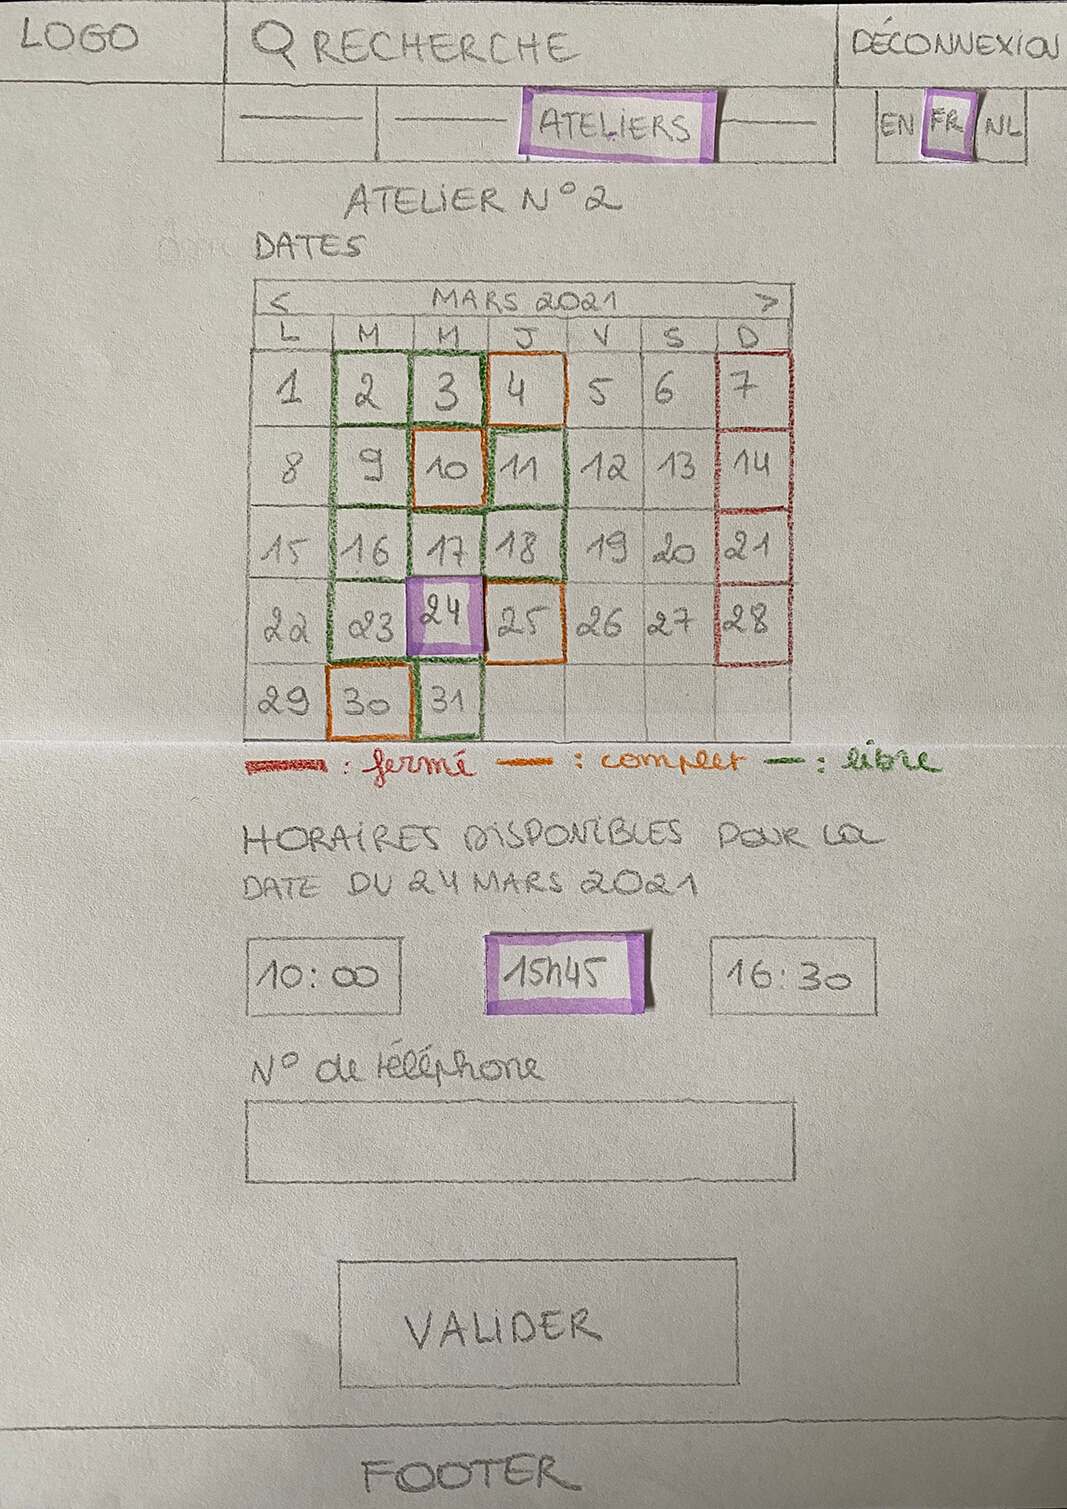 LOGO RECHERCHE DÉCONNEXION
ATELIERS EN FR NL
ATELIER N°2
DATES
< MARS 2021 >
L M M J V S D
1 2 3 4 5 6 7
8 9 10 11 12 13 14
15 16 17 18 19 20 21
22 23 24 25 26 27 28
29 30 31
: fermé : complet : libre
HORAIRES DISPONIBLES POUR La
DATE DU 24 MARS 2021
10:00 15h45 16:30
N° de téléphone
VALIDER
FOOTER